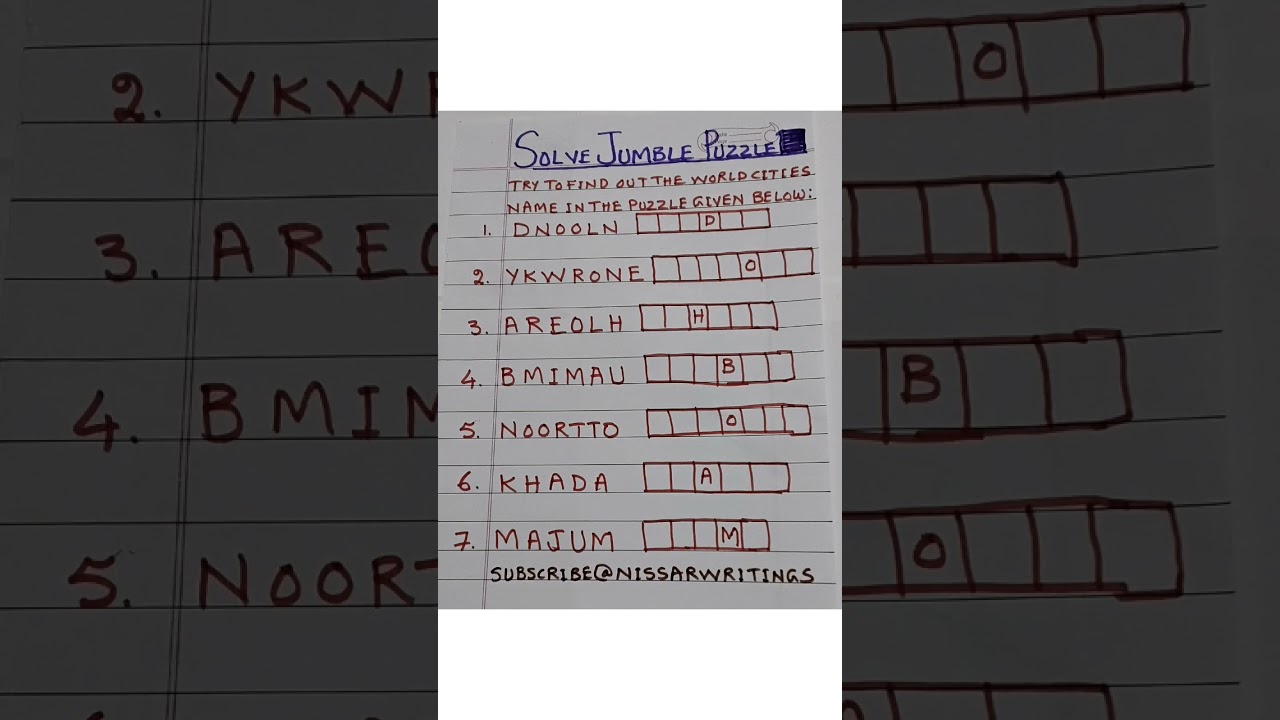 SOLVE JUMBLE PUZZLE
TRY TO FIND OUT THE WORLD CITIES
NAME IN THE PUZZLE GIVEN BELOW:
1. DNOOLN D
2. YKWRONE O
3. AREOLH H
4. BMIMAU B
5. NOORTTO O
6. KHADA A
7. MAJUM M
SUBSCRIBE@NISSARWRITINGS